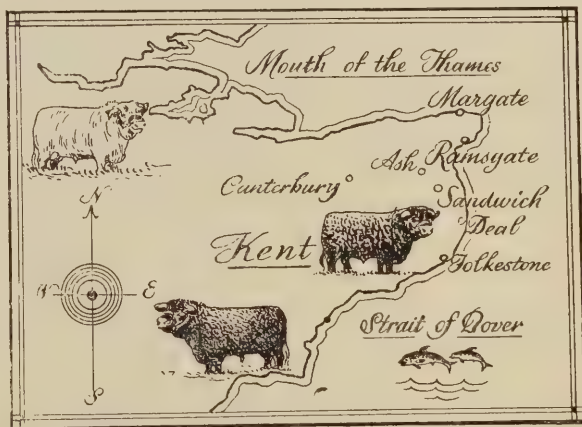 Mouth of the Thames
Margate
Ramsgate
Ash
Canterbury
Sandwich
Deal
Kent
Folkestone
Strait of Dover
N
W
E
S